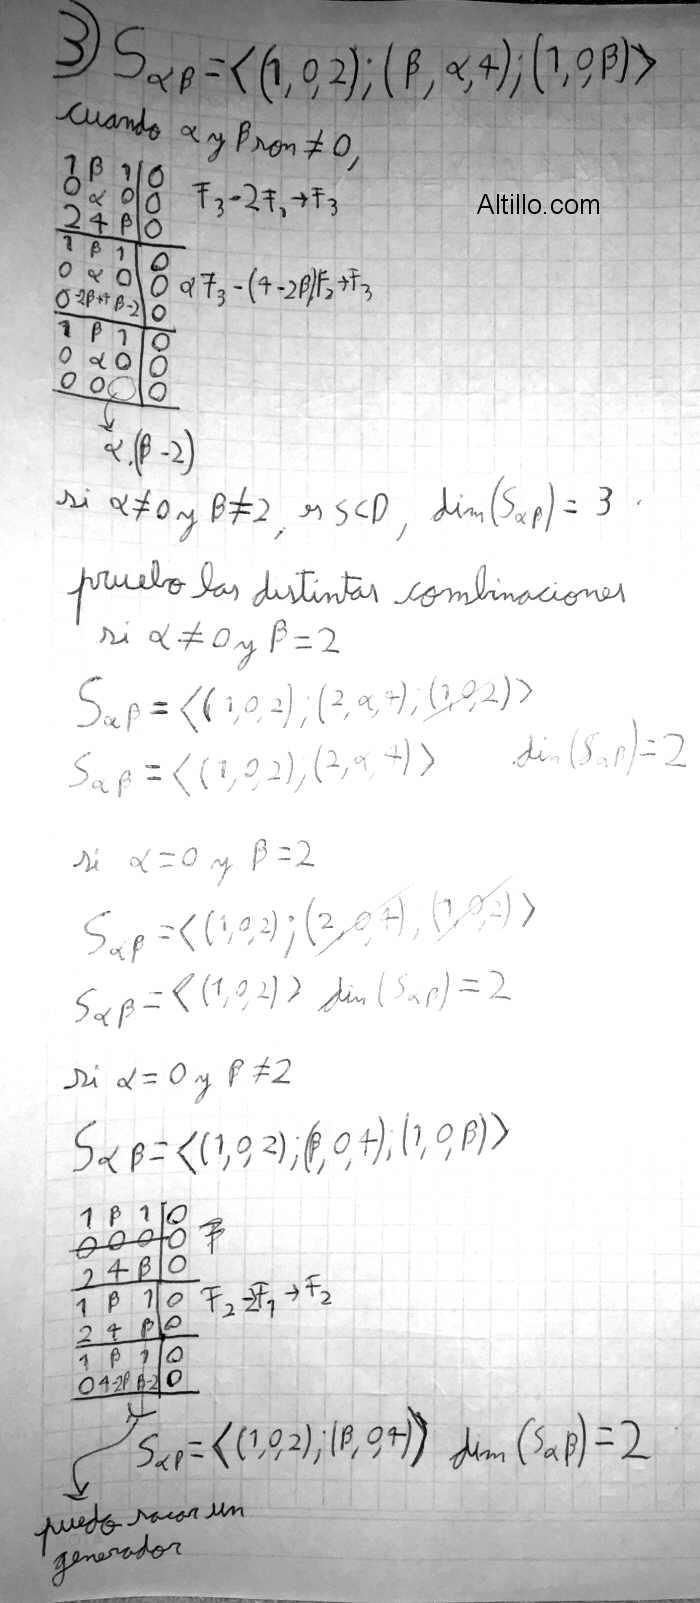 3) Sαβ = <(1,0,2);(β,α,4);(1,0,β)>
cuando α y β son ≠ 0,
Altillo.com
1 β 1 | 0
0 α 0 | 0 F₃-2F₁→F₃
2 4 β | 0
1 β 1 | 0
0 α 0 | 0 αF₃-(4-2β)F₂→F₃
0 -2β+4 β-2 | 0
1 β 1 | 0
0 α 0 | 0
0 0 | 0
α.(β-2)
si α≠0 y β≠2, es SCD, dim(Sαβ) = 3.
pruebo las distintas combinaciones
si α≠0 y β=2
Sαβ = <(1,0,2);(2,α,4);(1,0,2)>
Sαβ = <(1,0,2);(2,α,4)> dim(Sαβ)=2
si α=0 y β=2
Sαβ = <(1,0,2);(2,0,4),(1,0,2)>
Sαβ = <(1,0,2)> dim(Sαβ)=2
si α=0 y β≠2
Sαβ = <(1,0,2);(β,0,4);(1,0,β)>
1 β 1 | 0
0 0 0 | 0 F
2 4 β | 0
1 β 1 | 0 F₂-2F₁→F₂
2 4 β | 0
1 β 1 | 0
0 4-2β β-2 | 0
Sαβ = <(1,0,2);(β,0,4)> dim(Sαβ)=2
puedo sacar un
generador